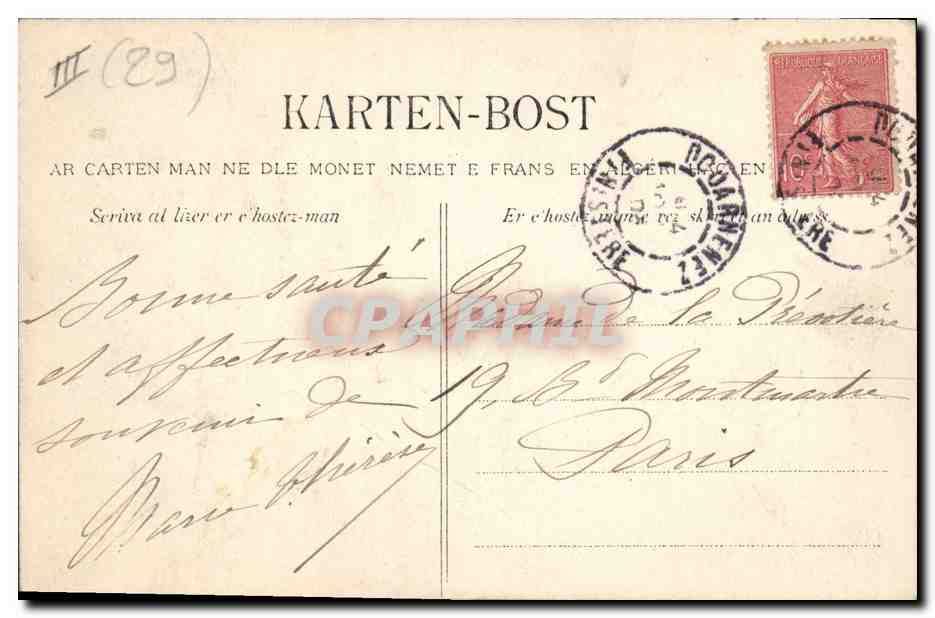 III (29)
KARTEN-BOST
AR CARTEN MAN NE DLE MONET NEMET E FRANS EN ALGERI HAG EN
Scriva al lizer er c'hostez-man
Er c'hostez-man
an adress
RÉPUBLIQUE FRANÇAISE
10
DOUARNENEZ
FINISTÈRE
DOUARNENEZ
FINISTÈRE
Bonne santé
et affectueux
souvenir de
Marie Thérèse
Madame de la
19, Bd Montmartre
Paris
CPAPHIL